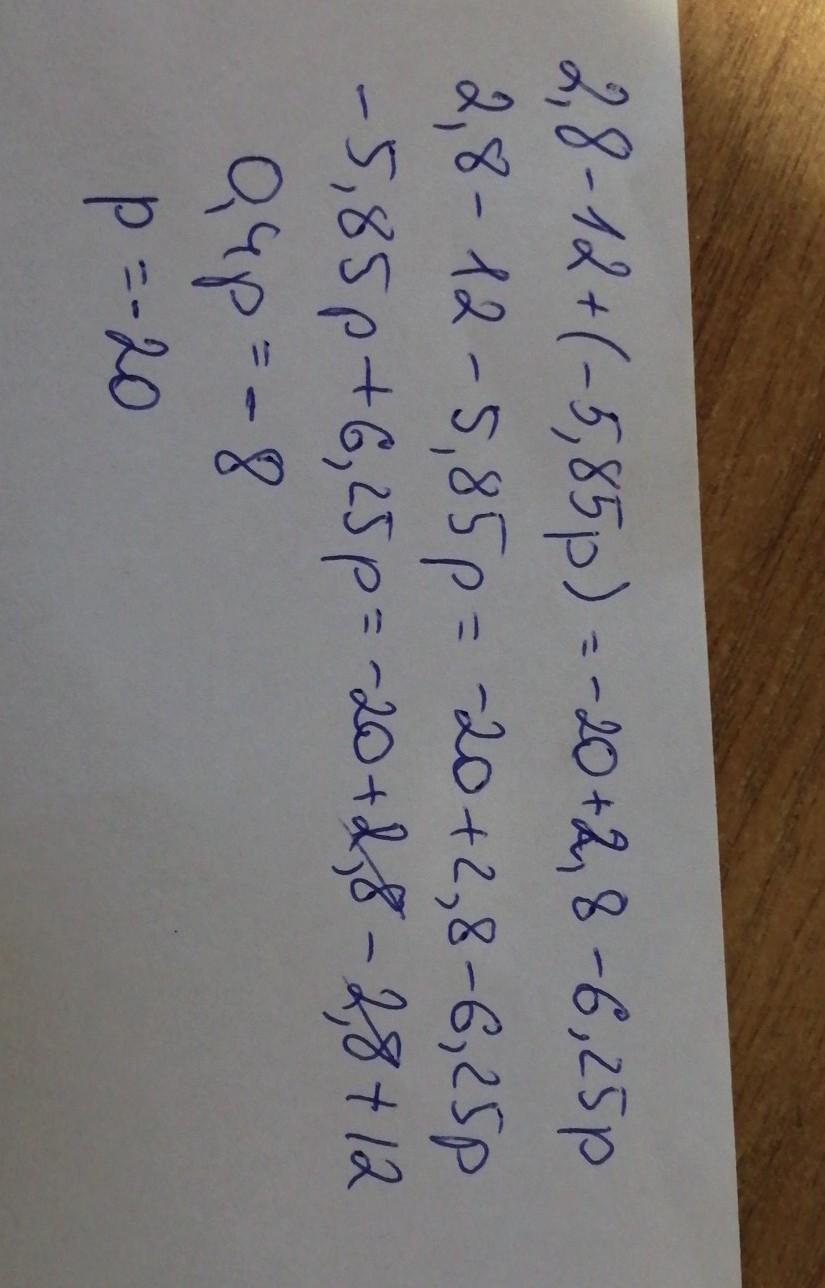 2,8-12+(-5,85p)=-20+2,8-6,25p
2,8-12-5,85p=-20+2,8-6,25p
-5,85p+6,25p=-20+2,8-2,8+12
0,4p=-8
p=-20